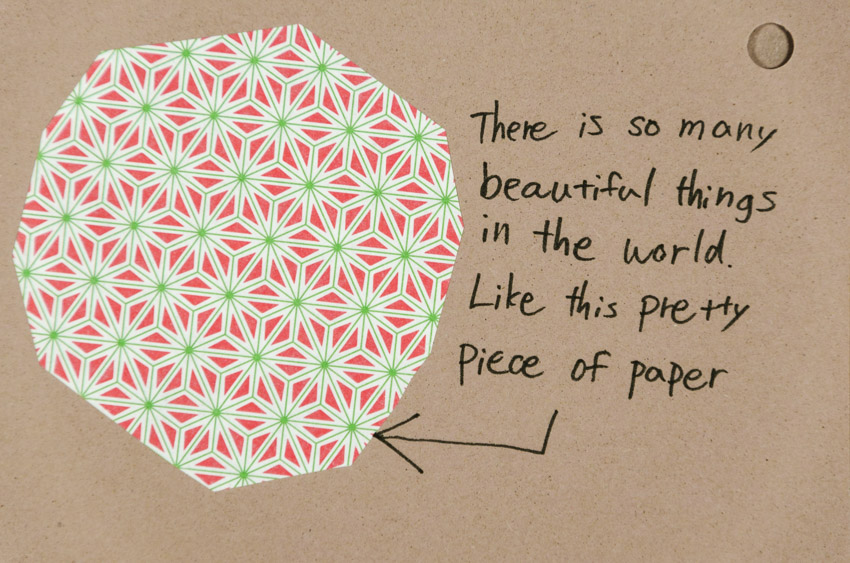 There is so many
beautiful things
in the world.
Like this pretty
piece of paper